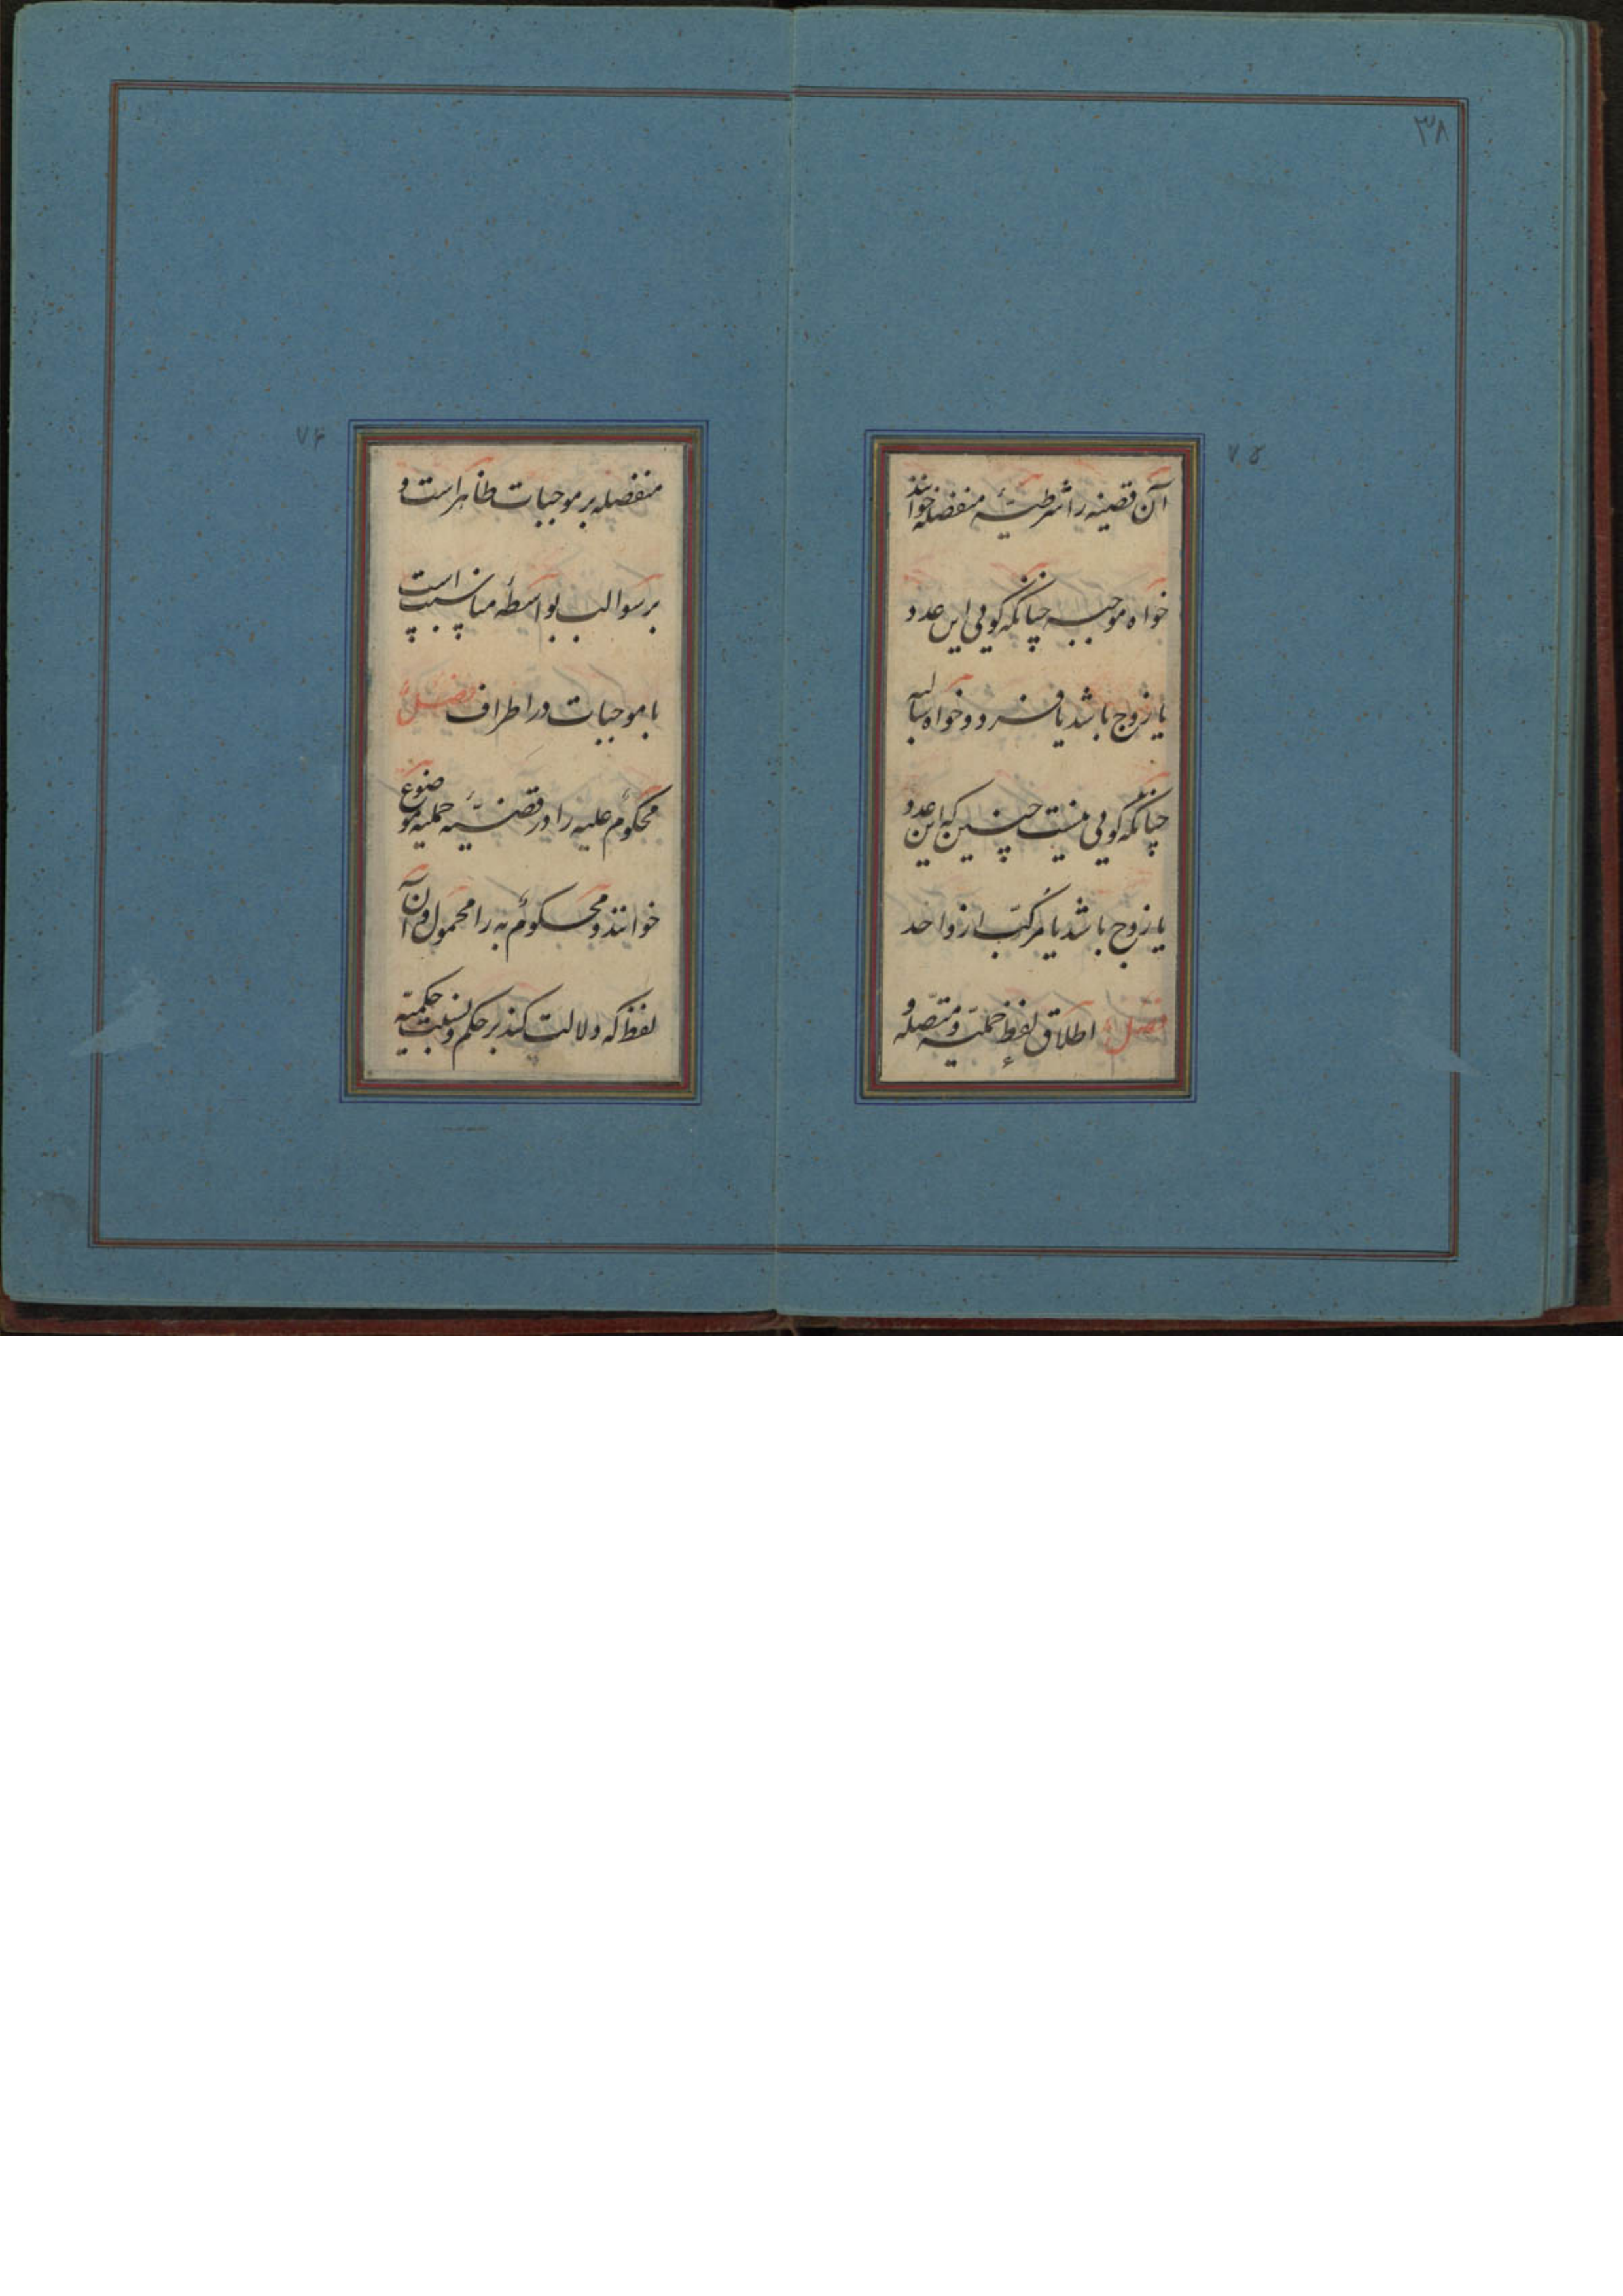 ۳۸
۷۵
آن قضیه را شرطیّهٔ منفصله خوانند
خواه موجبه چنانکه گویی این عدد
یا زوج باشد یا فرد و خواه سالبه
چنانکه گویی نیست چنین که این عدد
یا زوج باشد یا مرکّب از واحد
فصل اطلاق لفظ حملیّه و متّصله و
۷۶
منفصله بر موجبات ظاهر است و
بر سوالب بواسطهٔ مناسبت است
با موجبات در اطراف فصل
محکوم علیه را در قضیّهٔ حملیه موضوع
خوانند و محکوم به را محمول و آن
لفظ که دلالت کند بر حکم و نسبت حکمیّه